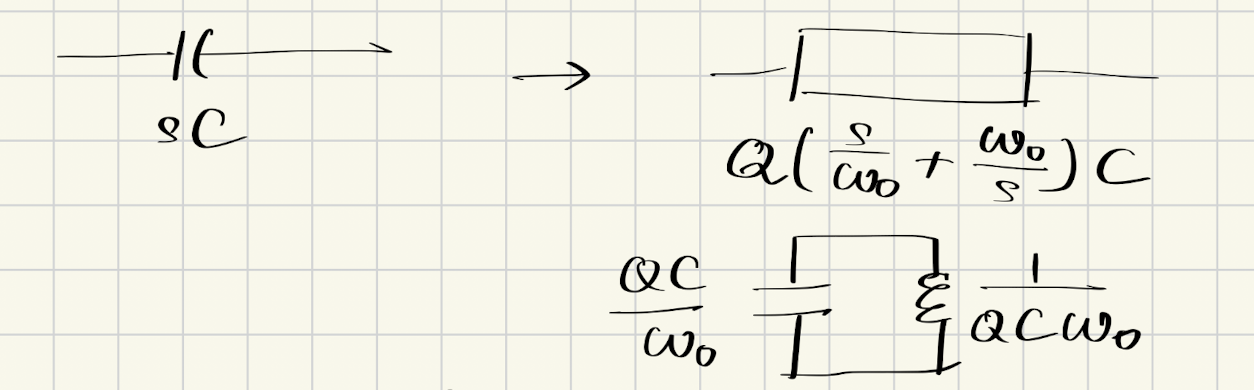 sC
→
Q(s/ω₀ + ω₀/s)C
QC/ω₀
1/QCω₀